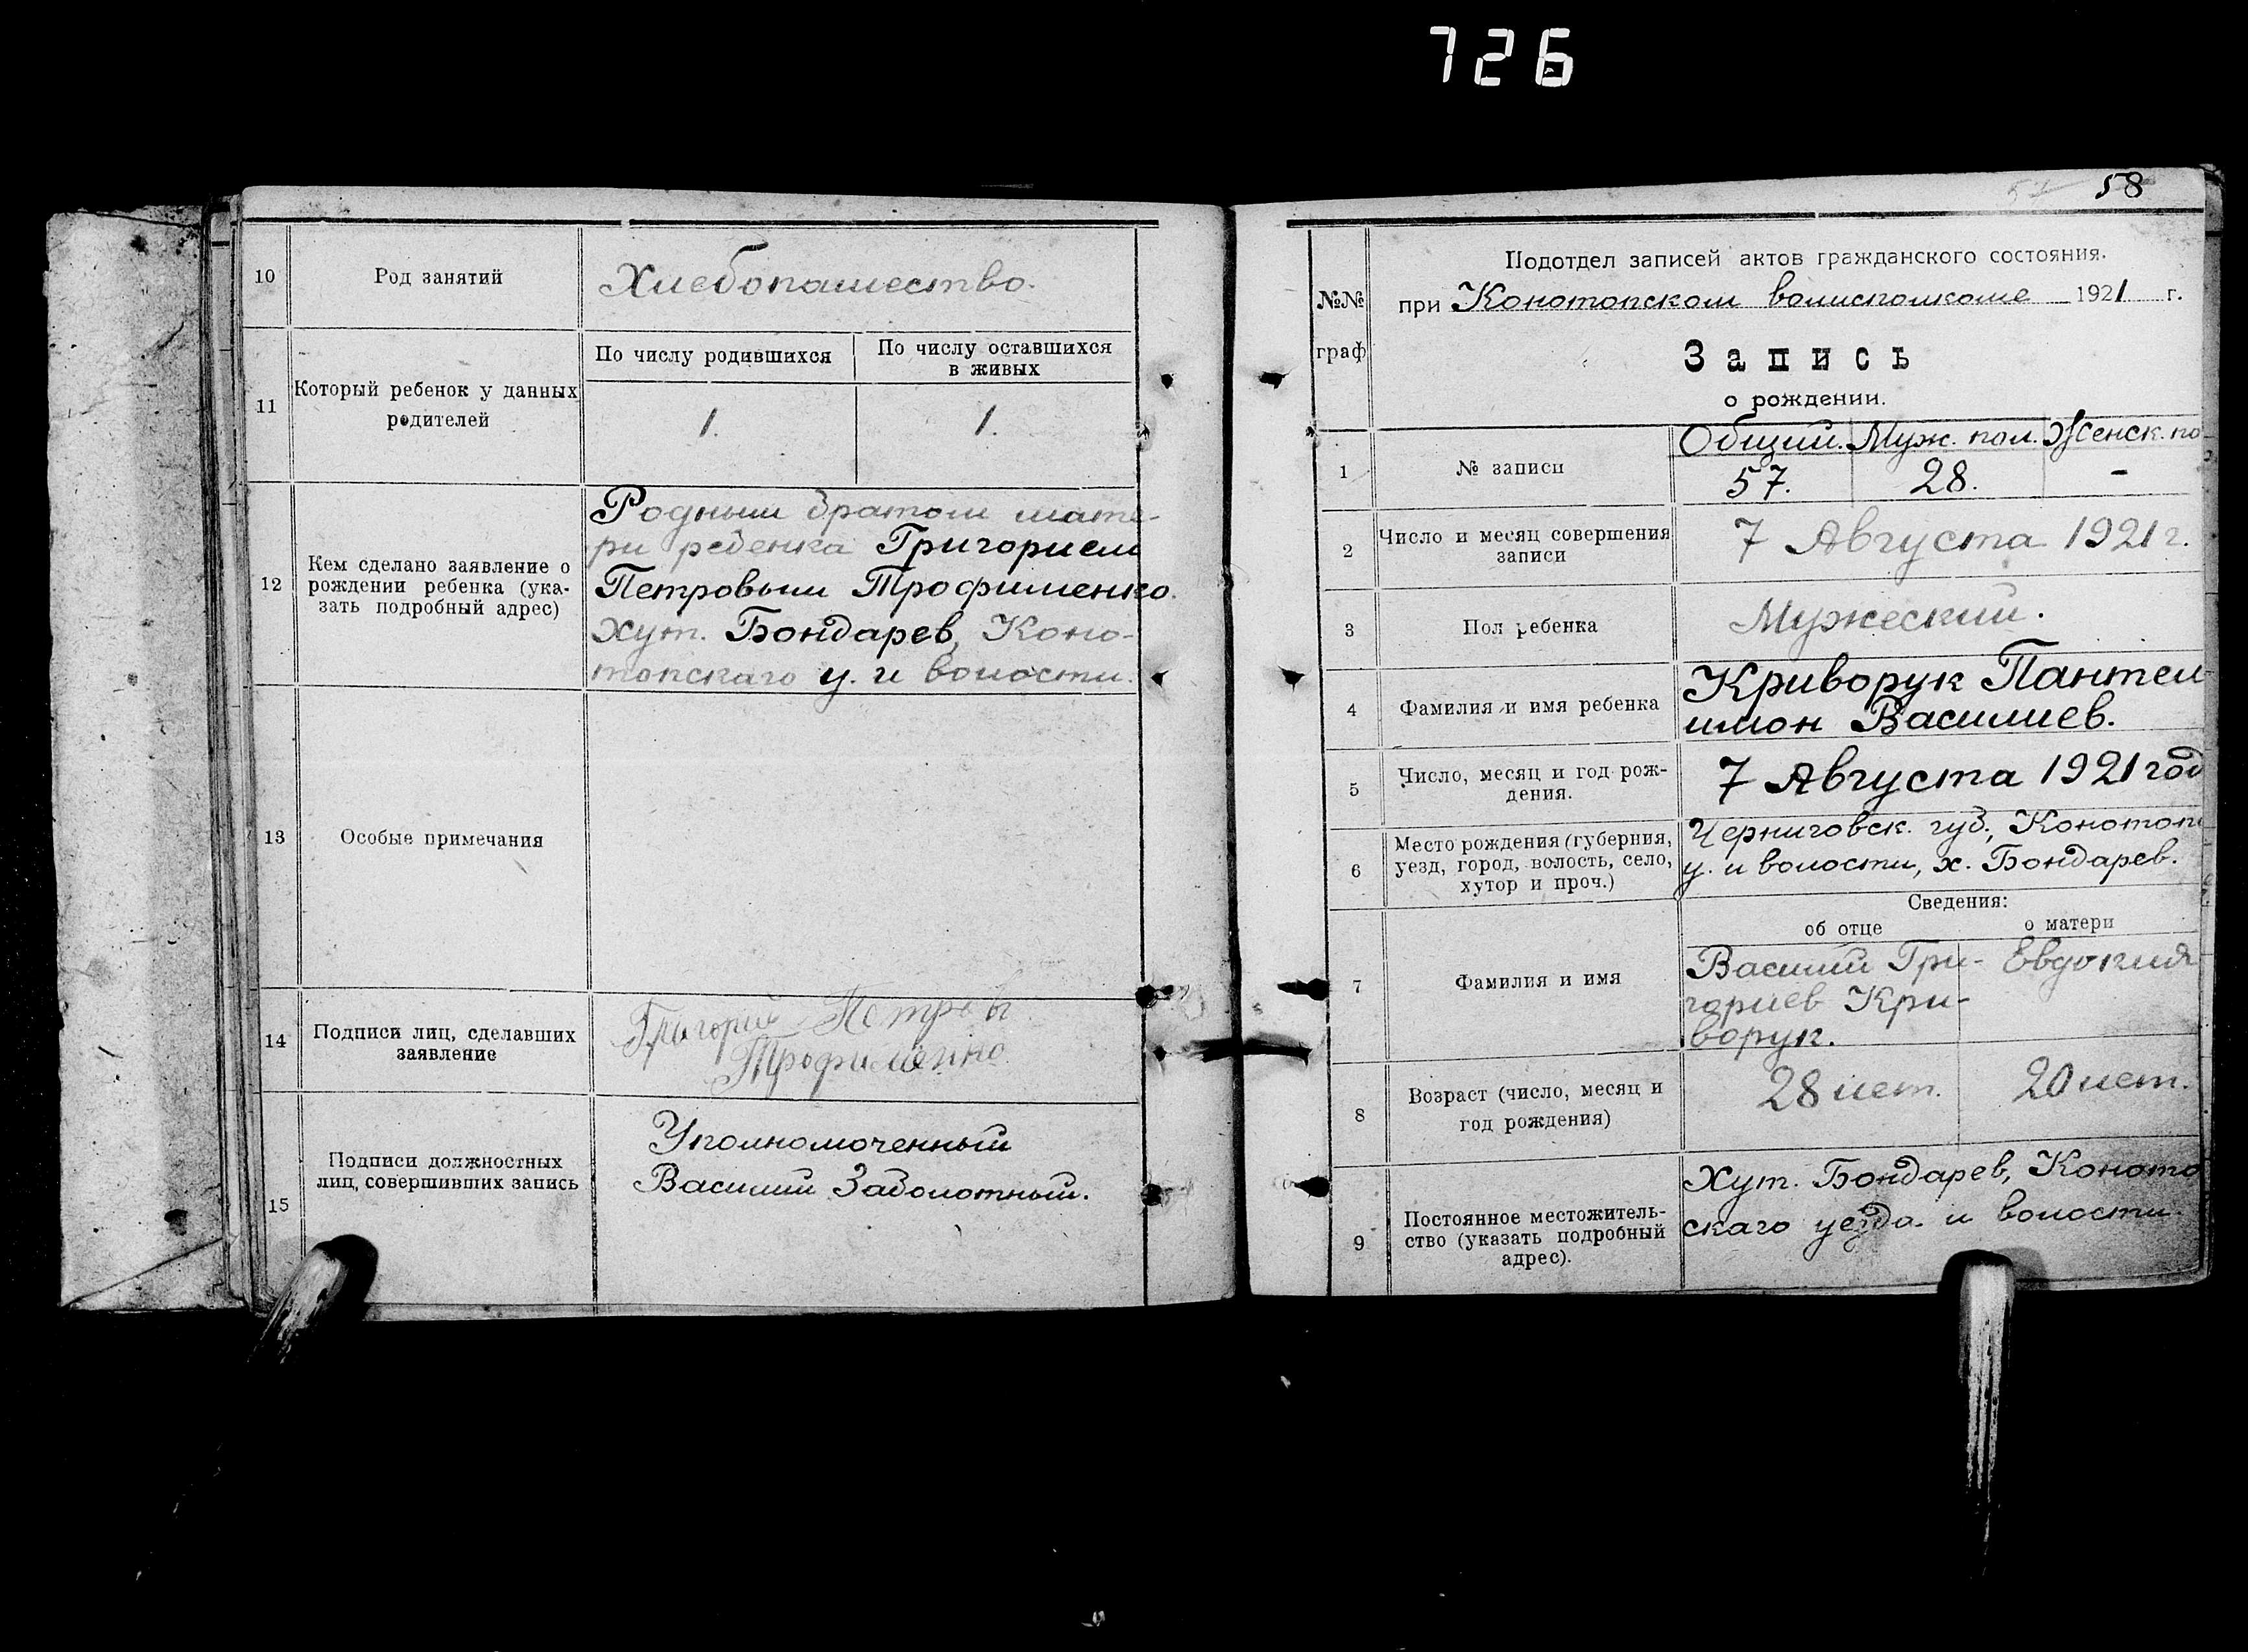 726
10
Род занятий
Хлебопашество.
11
Который ребенок у данных
родителей
По числу родившихся
По числу оставшихся
в живых
1.
1.
12
Кем сделано заявление о
рождении ребенка (ука-
зать подробный адрес)
Родным братом мате-
ри ребенка Григорием
Петровым Трофименко.
Хут. Бондарев, Коно-
топскаго у. и волости.
13
Особые примечания
14
Подписи лиц, сделавших
заявление
Григорий Петровъ
Трофименко
15
Подписи должностных
лиц, совершивших запись
Уполномоченный
Василий Заболотный.
58
№№
граф
Подотдел записей актов гражданского состояния.
при Конотопском волисполкоме 1921 г.
Запись
о рождении.
1
№ записи
Общий. Муж. пол. Женск. по
57. 28. -
2
Число и месяц совершения
записи
7 Августа 1921 г.
3
Пол ребенка
Мужеский.
4
Фамилия и имя ребенка
Криворук Пантел
имон Василиев.
5
Число, месяц и год рож-
дения.
7 Августа 1921 год
6
Место рождения (губерния,
уезд, город, волость, село,
хутор и проч.)
Черниговск. губ., Конотоп
у. и волости, х. Бондарев.
Сведения:
об отце
о матери
7
Фамилия и имя
Василий Гри-
гориев Кри-
ворук.
Евдокия
8
Возраст (число, месяц и
год рождения)
28 лет.
20 лет.
9
Постоянное местожитель-
ство (указать подробный
адрес).
Хут. Бондарев, Коното
скаго уезда и волости.